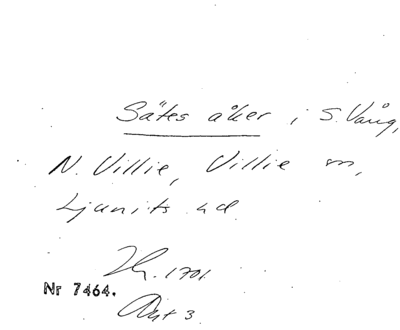 Sätes åker i S. Vång,
N. Villie, Villie sn,
Ljunits hd
1701.
Nr 7464.
Akt 3